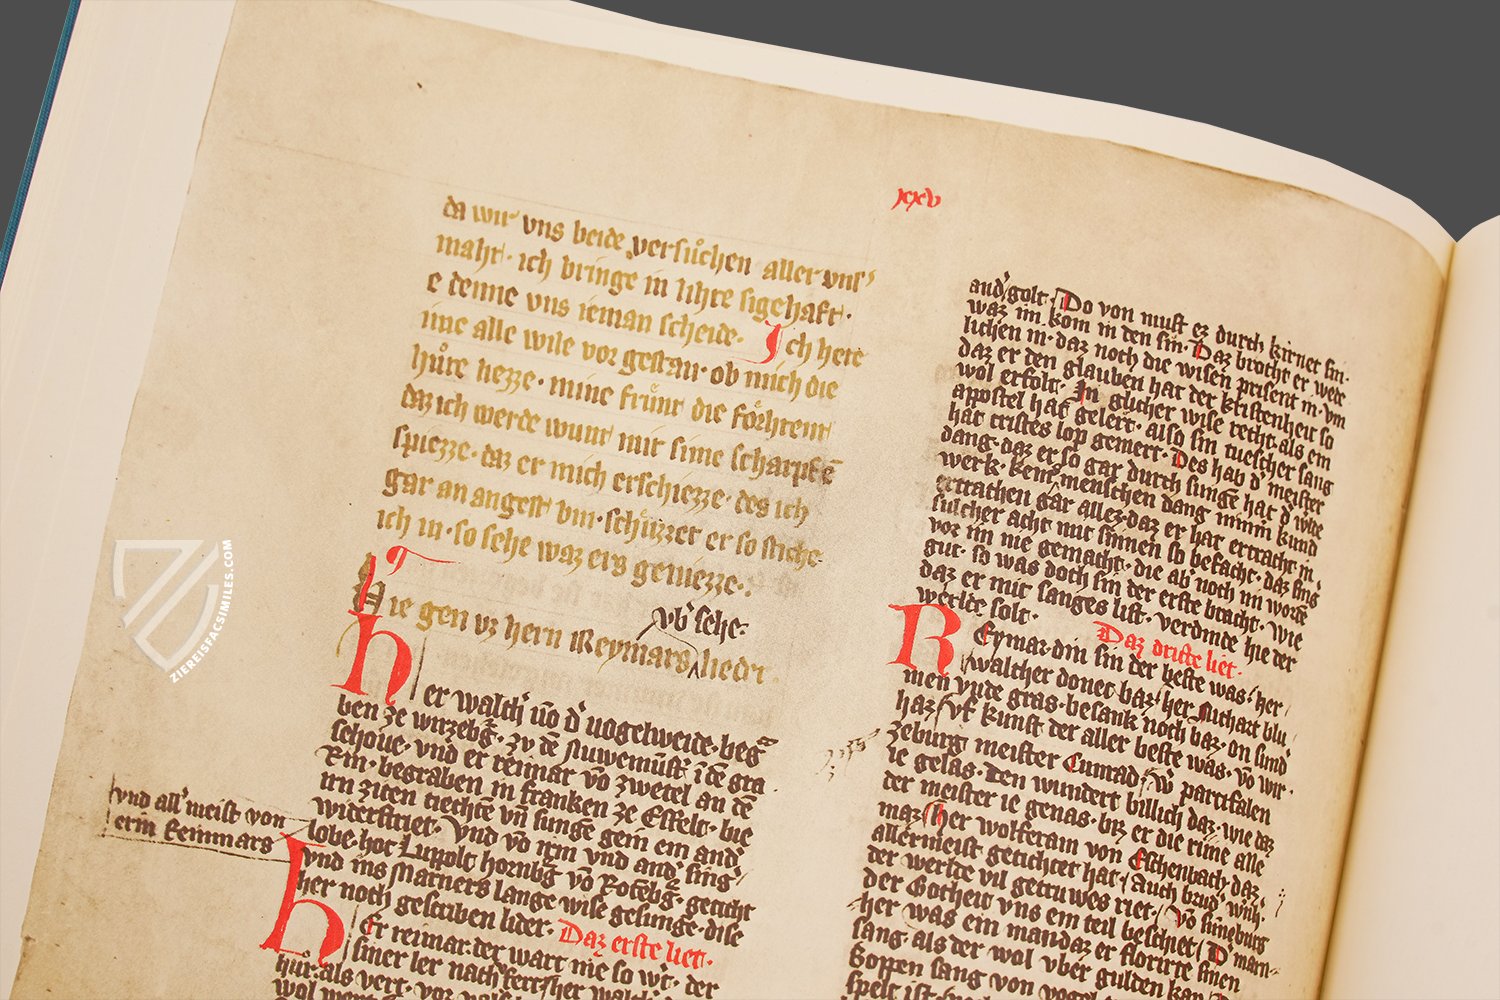 xxv
da wir uns beide versůchen aller uns'
maht· ich bringe in lihte sigehaft·
e denne vns ieman scheide· Ich hete
ime alle wile vor gestan· ob mich die
hůte liezze· mine frůnt die fôrhtent
daz ich werde wunt mit sime scharpfē
spiezze· daz er mich erschiezze· des ich
gar an angest bin· schůzzet er so stiche
ich in· so sehe waz ers geniezze·
Hie gen vz hern Reymars lieder·
vb' sehe·
her walth' vō d' uogelweide· beg
ben ze wirzebg· zv dē Nuwemůst' ī dē gra
schoue· vnd er reimar vō zwetel an dē
Rin· begraben in franken ze Esfelt· bie
irn ziten tiechtē vn̄ sungē gein ein and'
widerstriet· Vnd vō irm vnd and' sing'
lobe· hot Lupolt hornbg vō Rotēbg· geticht
vnd ins Marners lange wise gesunge· dise
her noch gescriben lider· Daz erste liet·
hEr reimar· der wart nie so wt· der
siner ler nach ker
hür· als vert· vor
wol
vnd all' meist von
ern Reinmars
and' golt· Do von must ez durch kirnet sin·
waz im kom in den sin· Daz brocht er wert
lichen in· daz noch die wisen prisent in· vm
daz er den glauben hat der kristenheit so
wol erfolt· In glicher wise recht als ein
apostel hat gelert· also sin tuescher sang
hat cristes lop gemert· Des hab d' meister
dang· daz er so gar durch sunge hat d' wise
werk· keins menschen dang nimm kund
ertrathen gar allez daz er hat ertracht in
sulcher acht mit sinnen so besacht· daz sing
vor im nie gemacht· die ab noch im worde
gut· so was doch sin der erste bracht· wie
daz er mit sanges list· verdinde hie der
werlde solt· Daz dritte liet·
REymar· din sin der beste was· her
walther donet baz· her Nithart blu
men vnde gras· besank noch baz· on sund
haz· vf kunst der aller beste was· vō wir
zeburg meister Cunrad· Sw partifalen
ie gelas· den wundert billich daz· wie daz
der meister ie genas· biz er die rime alle
maz· her wolferam von Eschenbach· daz
allermeist getichtet hat· Auch brud' wirh·
der werlde vil getruwes riet· Vō suneburg
der Gotheit vns ein teil beschiet· D' marn
her was ein man daz er florirte sinen
sang· als der wol vber gulden kan·
Boppen sang von vogel
spelt ist·
ZIEREISFACSIMILES.COM